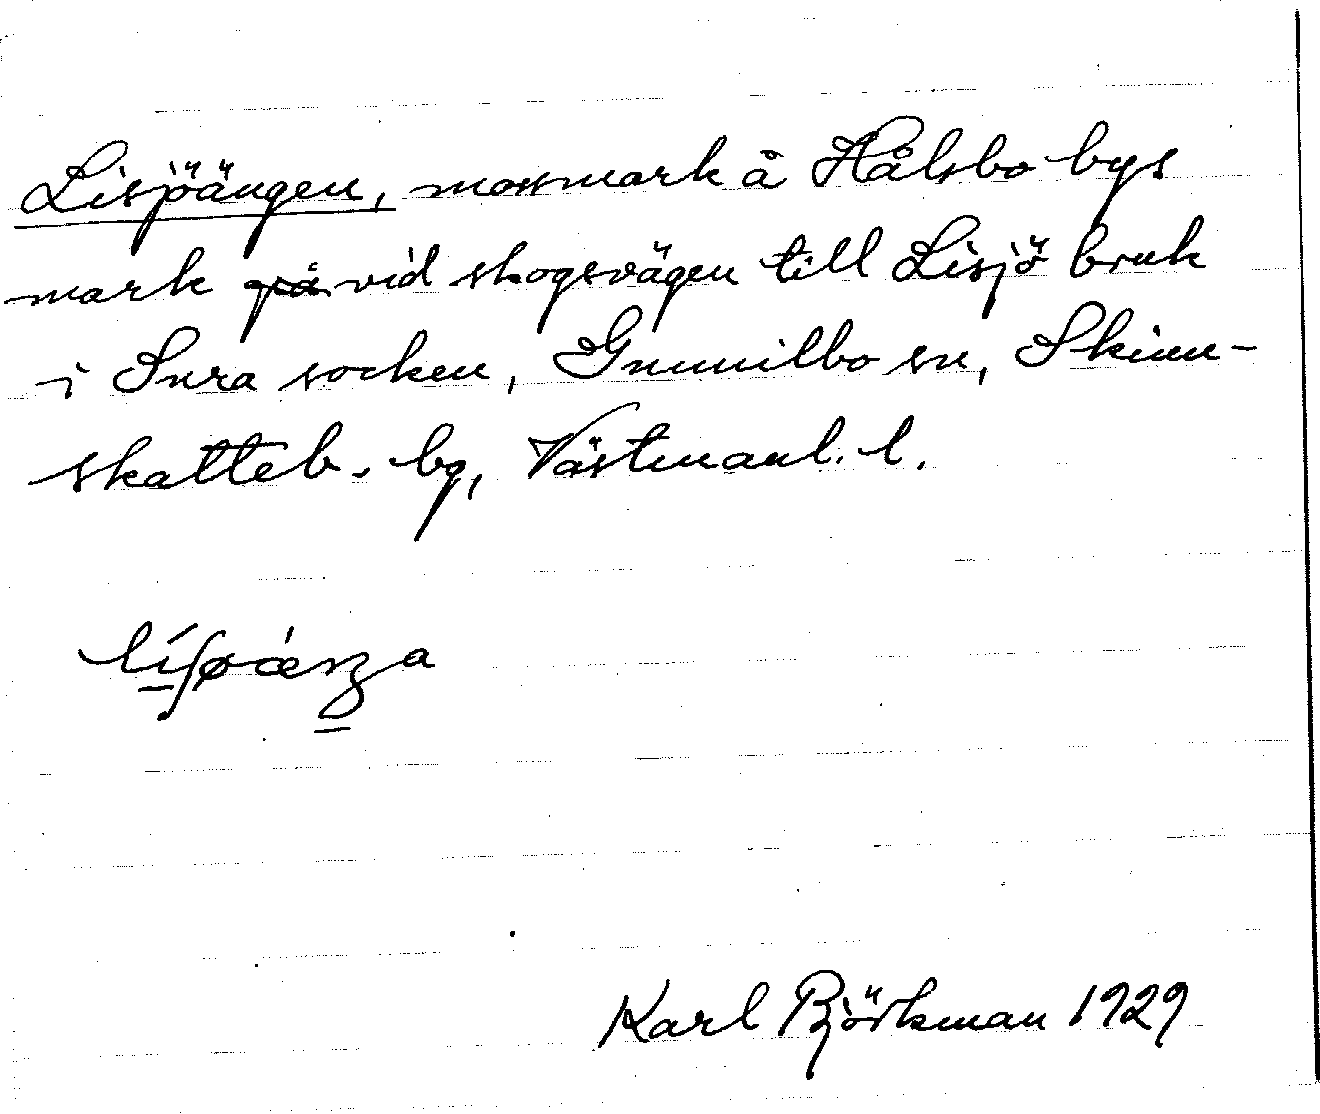 Lisjöängen, mossmark å Hålsbo bys
mark på vid skogsvägen till Lisjö bruk
i Sura socken, Gunnilbo sn, Skinn-
skatteb. bg, Västmanl. l.
Karl Björkman 1929